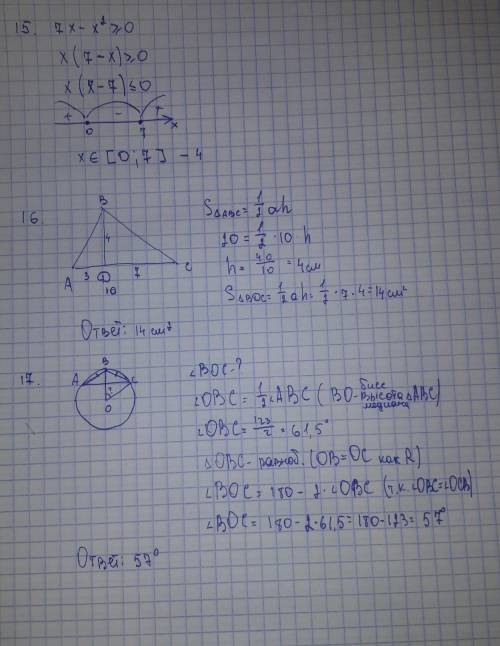 15. 7x - x² ≥ 0
x(7-x) ≥ 0
x(x-7) ≤ 0
+ - +
0 7 x
x ∈ [0;7] - 4
16.
B
4
A 3 D 7 C
10
S△ABC = 1/2 ah
20 = 1/2 · 10 h
h = 40/10 = 4см
S△BDC = 1/2 ah = 1/2 · 7 · 4 = 14см²
Ответ: 14 см²
17.
B
A C
?
O
∠BOC - ?
∠OBC = 1/2 ∠ABC (BO - бисс высота медиана △ABC)
∠OBC = 123/2 = 61,5°
△OBC - равноб. (OB = OC как R)
∠BOC = 180 - 2 · ∠OBC (т.к. ∠OBC = ∠OCB)
∠BOC = 180 - 2 · 61,5 = 180 - 123 = 57°
Ответ: 57°